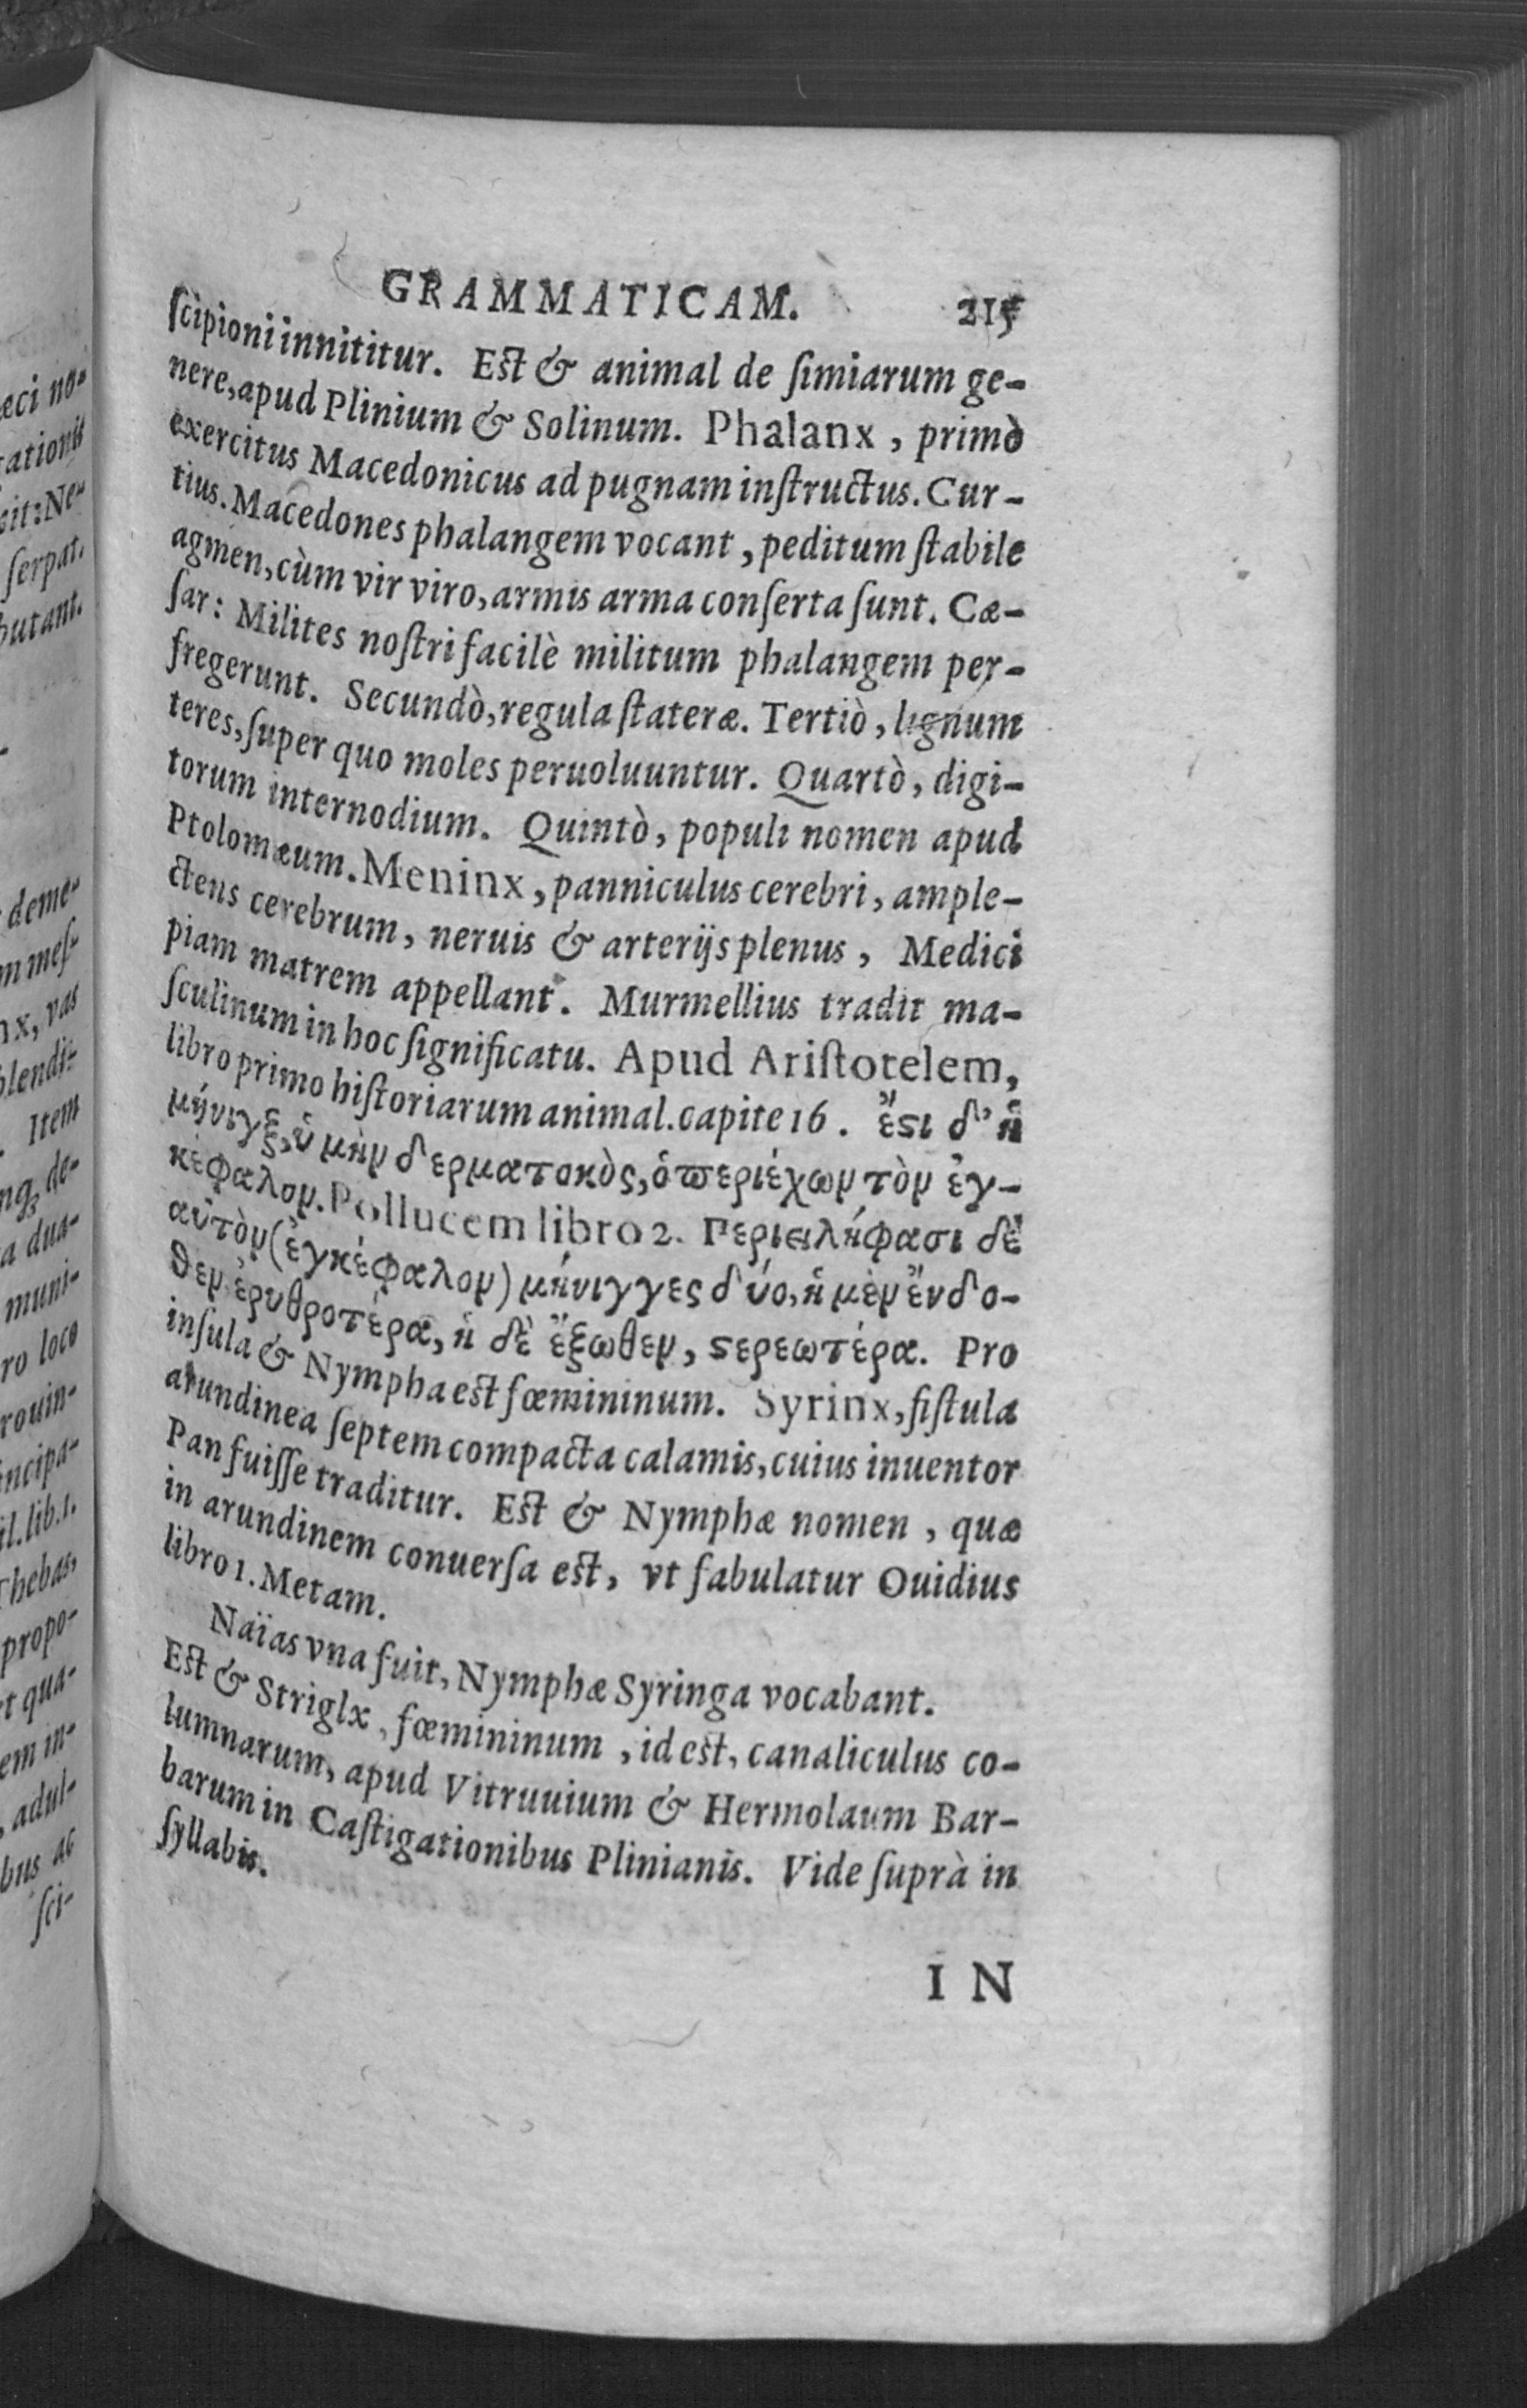 GRAMMATICAM. 215
ſcipioni innititur. Est & animal de ſimiarum ge-
nere, apud Plinium & Solinum. Phalanx, primò
exercitus Macedonicus ad pugnam inſtructus. Cur-
tius. Macedones phalangem vocant, peditum ſtabile
agmen, cùm vir viro, armis arma conſerta ſunt. Cæ-
ſar: Milites noſtri facilè militum phalangem per-
fregerunt. Secundò, regula ſtateræ. Tertiò, lignum
teres, ſuper quo moles peruoluuntur. Quartò, digi-
torum internodium. Quintò, populi nomen apud
Ptolomæum. Meninx, panniculus cerebri, ample-
ctens cerebrum, neruis & arterijs plenus, Medici
piam matrem appellant. Murmellius tradit ma-
ſculinum in hoc ſignificatu. Apud Ariſtotelem,
libro primo hiſtoriarum animal. capite 16. ἔϛι δ' ἡ
μήνιγξ, ὑμὴν δερματοκὸς, ὁ περιέχων τὸν ἐγ-
κέφαλον. Pollucem libro 2. Περιειλήφασι δὲ
αὐτὸν (ἐγκέφαλον) μήνιγγες δύο, ἡ μὲν ἔνδο-
θεν ἐρυθροτέρα, ἡ δὲ ἔξωθεν, ϛερεωτέρα. Pro
inſula & Nympha est fœmininum. Syrinx, fiſtula
arundinea ſeptem compacta calamis, cuius inuentor
Pan fuiſſe traditur. Est & Nymphæ nomen, quæ
in arundinem conuerſa est, vt fabulatur Ouidius
libro 1. Metam.
Naïas vna fuit, Nymphæ Syringa vocabant.
Est & Striglx, fœmininum, id est, canaliculus co-
lumnarum, apud Vitruuium & Hermolaum Bar-
barum in Caſtigationibus Plinianis. Vide ſuprà in
ſyllabis.
IN